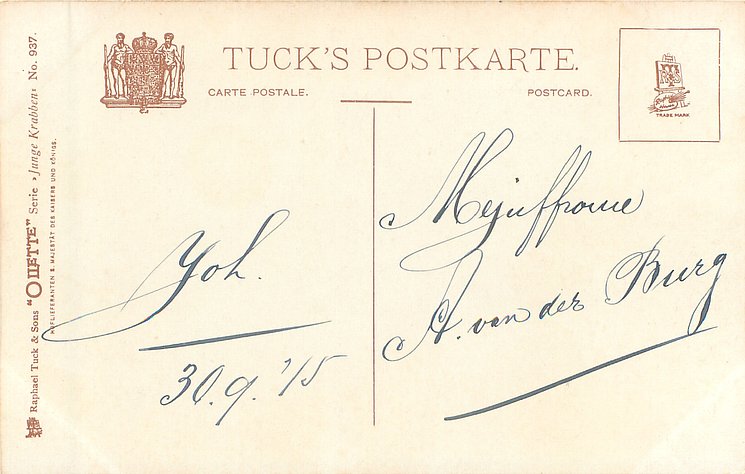 TUCK'S POSTKARTE.
CARTE POSTALE.
POSTCARD.
TRADE MARK
Raphael Tuck & Sons "OILETTE" Serie „Junge Krabben" No. 937.
HOFLIEFERANTEN S. MAJESTÄT DES KAISERS UND KÖNIGS.
Joh.
30.9.'15
Mejuffrouw
A. van der Burg